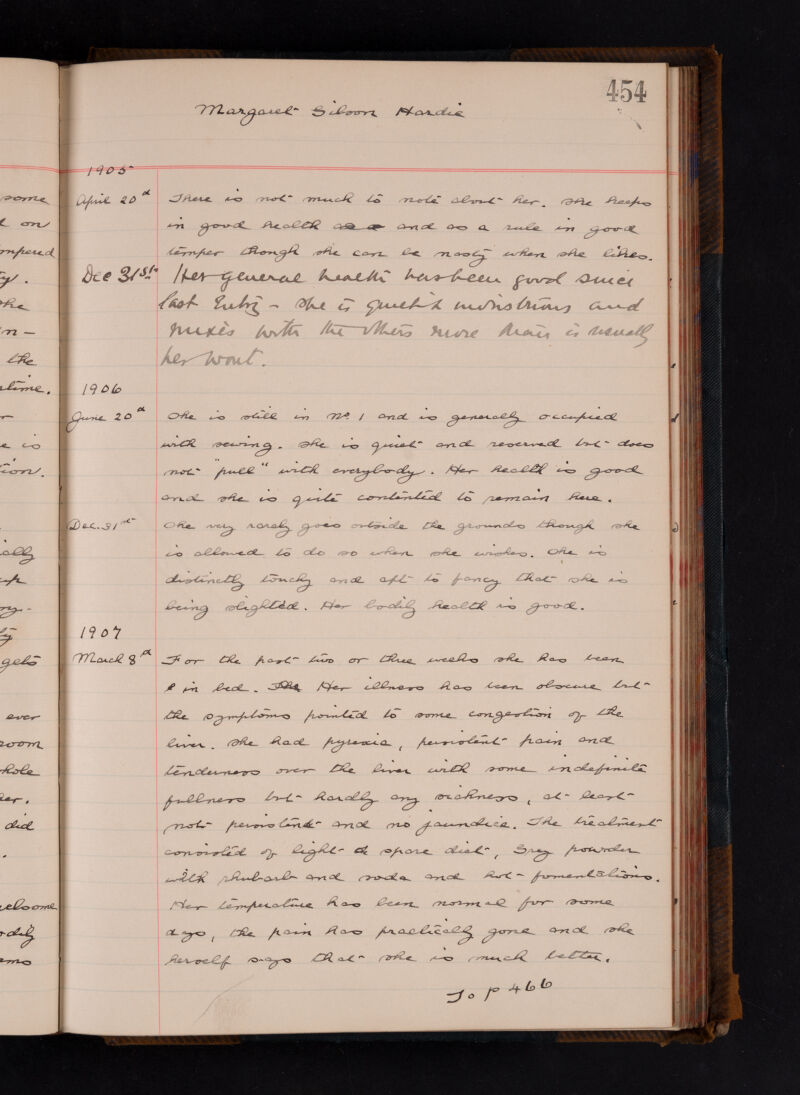 454
Margaret Gibson Hardie
1905
April 20th There is not much to note about her. She keeps
in good health and as a rule in good
temper though she can be nasty when she likes.
Dec 31st Her general health has been good since
last Entry - She is quiet & industrious and
mixes with the others more than is usually
her wont.
1906
June 20th She is still in No 1 and is generally occupied
with sewing. She is quiet and reserved but does
not "pull" with everybody. Her health is good
and she is quite contented to remain here.
Dec. 31st She very rarely goes outside the grounds though she
is allowed to do so when she wishes. She is
distinctly touchy and apt to fancy that she is
being slighted. Her bodily health is good.
1907
March 8th For the past two or three weeks she has been
in bed. Her illness has been obscure but
the symptoms pointed to some congestion of the
liver. She had pyrexia, persistent pain and
tenderness over the liver with some indefinite
fullness but hardly any sickness, at least
not persistent and no jaundice. The treatment
consisted of light & spare diet, Grey powder
with rhubarb and soda and hot fomentations.
Her temperature has been normal for some
days, the pain has practically gone and she
herself says that she is much better.
To p 466
some
on
the
time.
is
gets
ever
room
whole
her.
did